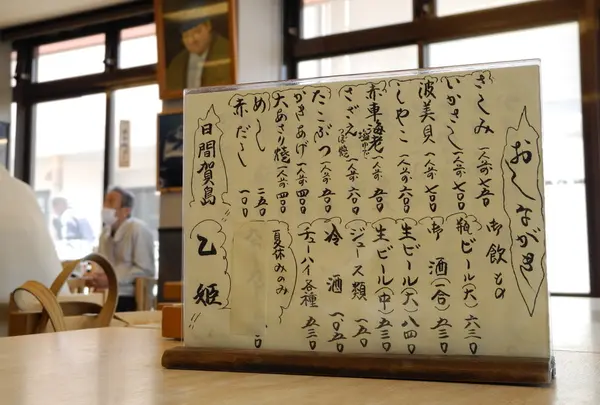 おしながき
さしみ 一人前 七五〇
いかさし 一人前 七〇〇
波美貝 一人前 七〇〇
しやこ 一人前 六〇〇
赤車海老 塩ゆで 一人前 五〇〇
さざえ つぼ焼 一人前 六〇〇
たこぶつ 一人前 五〇〇
かきあげ 一人前 四〇〇
大あさり焼 一人前 四〇〇
めし 二五〇
赤だし 一〇〇
お飲もの
瓶ビール(大) 六二〇
お酒(一合) 五三〇
生ビール(大) 八四〇
生ビール(中) 五三〇
ジュース類 一五〇
冷酒 一〇五〇
チューハイ各種 五三〇
夏休みのみ
日間賀島
乙姫